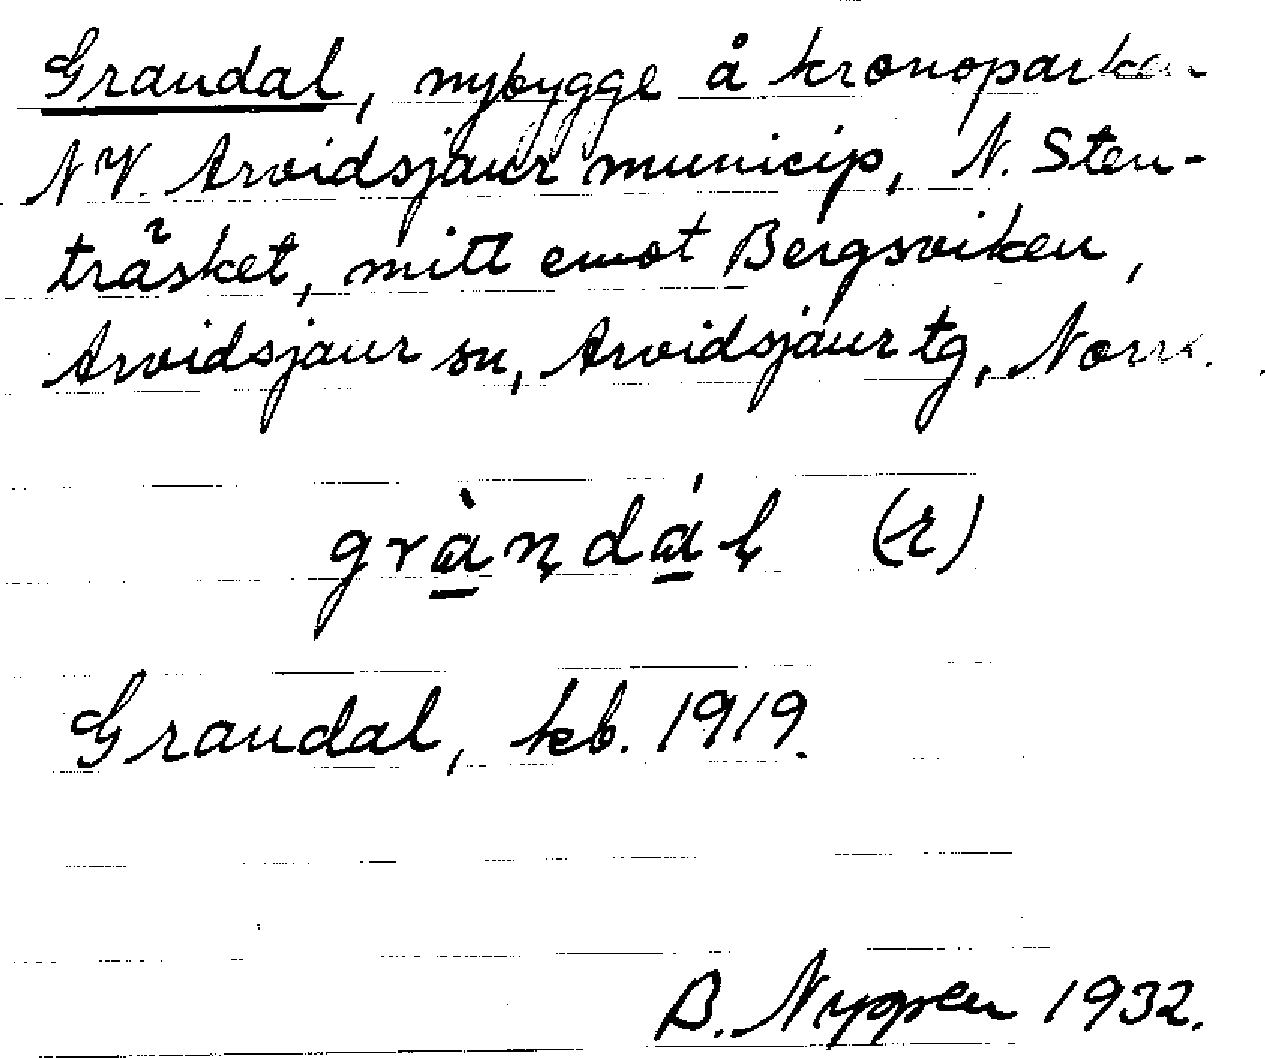 Grandal, nybygge å kronoparken
NV. Arvidsjaur municip, N. Sten-
träsket, mitt emot Bergsviken,
Arvidsjaur sn, Arvidsjaur tg, Norrb.
gràndál (-r)
Grandal, kb. 1919.
B. Nygren 1932.